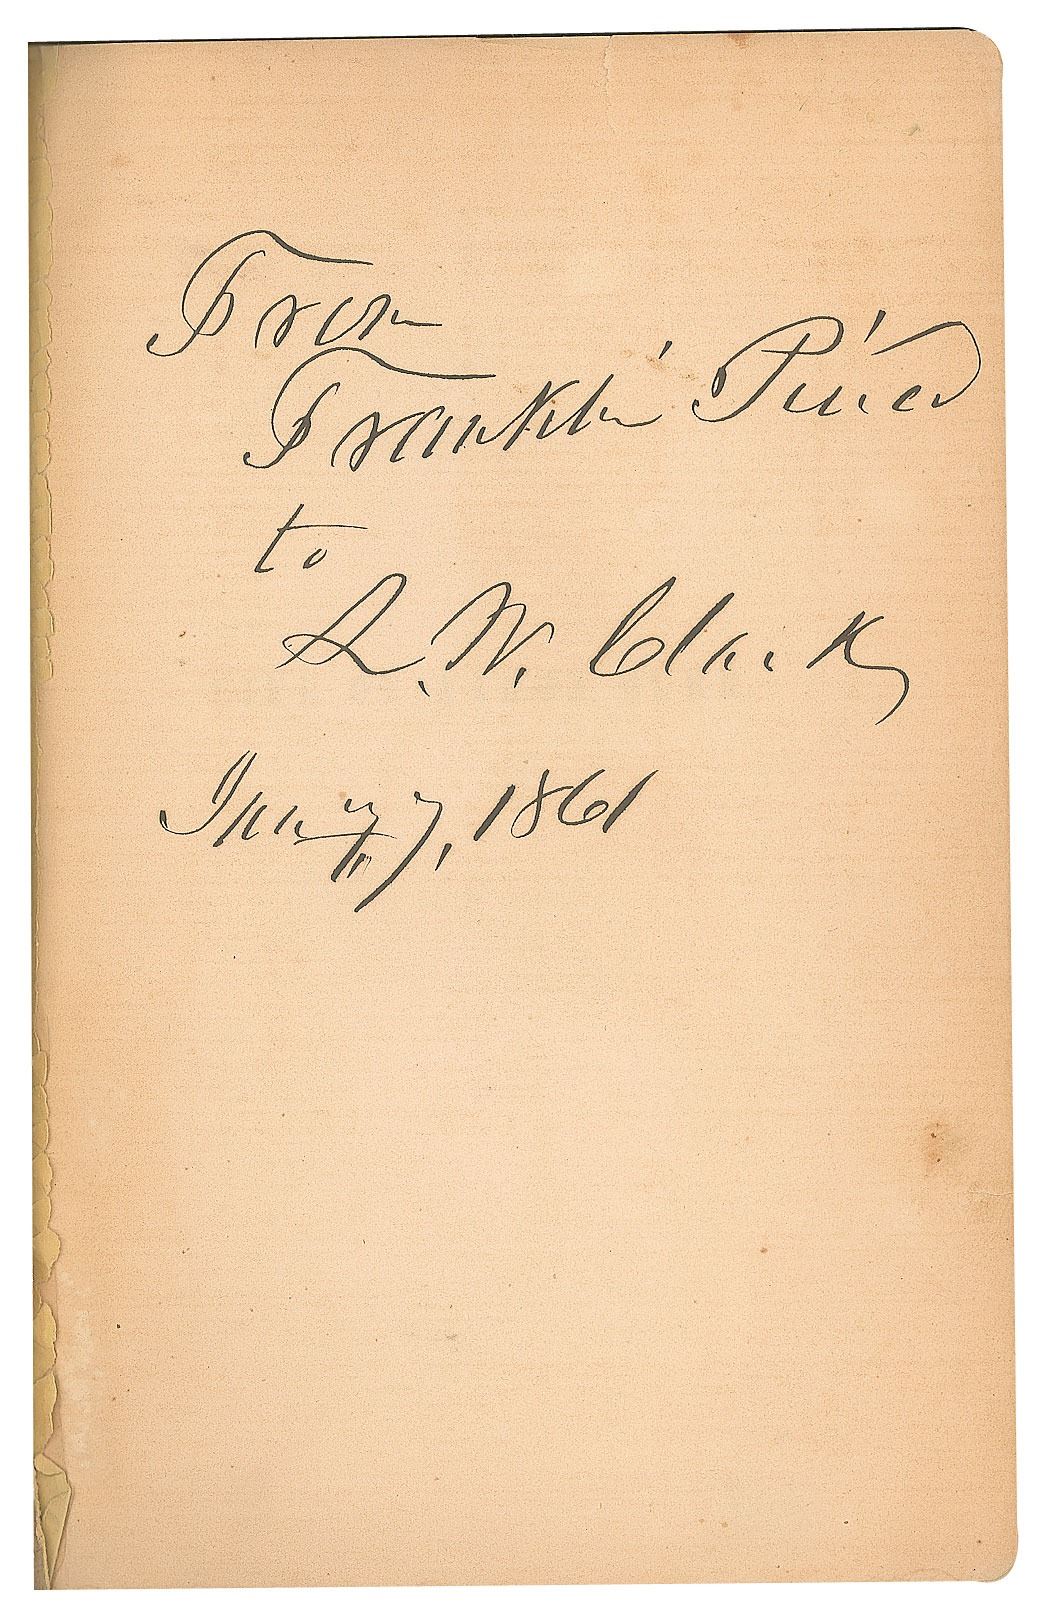 From
Franklin Pierce
to
L. W. Clark
Jany 7, 1861